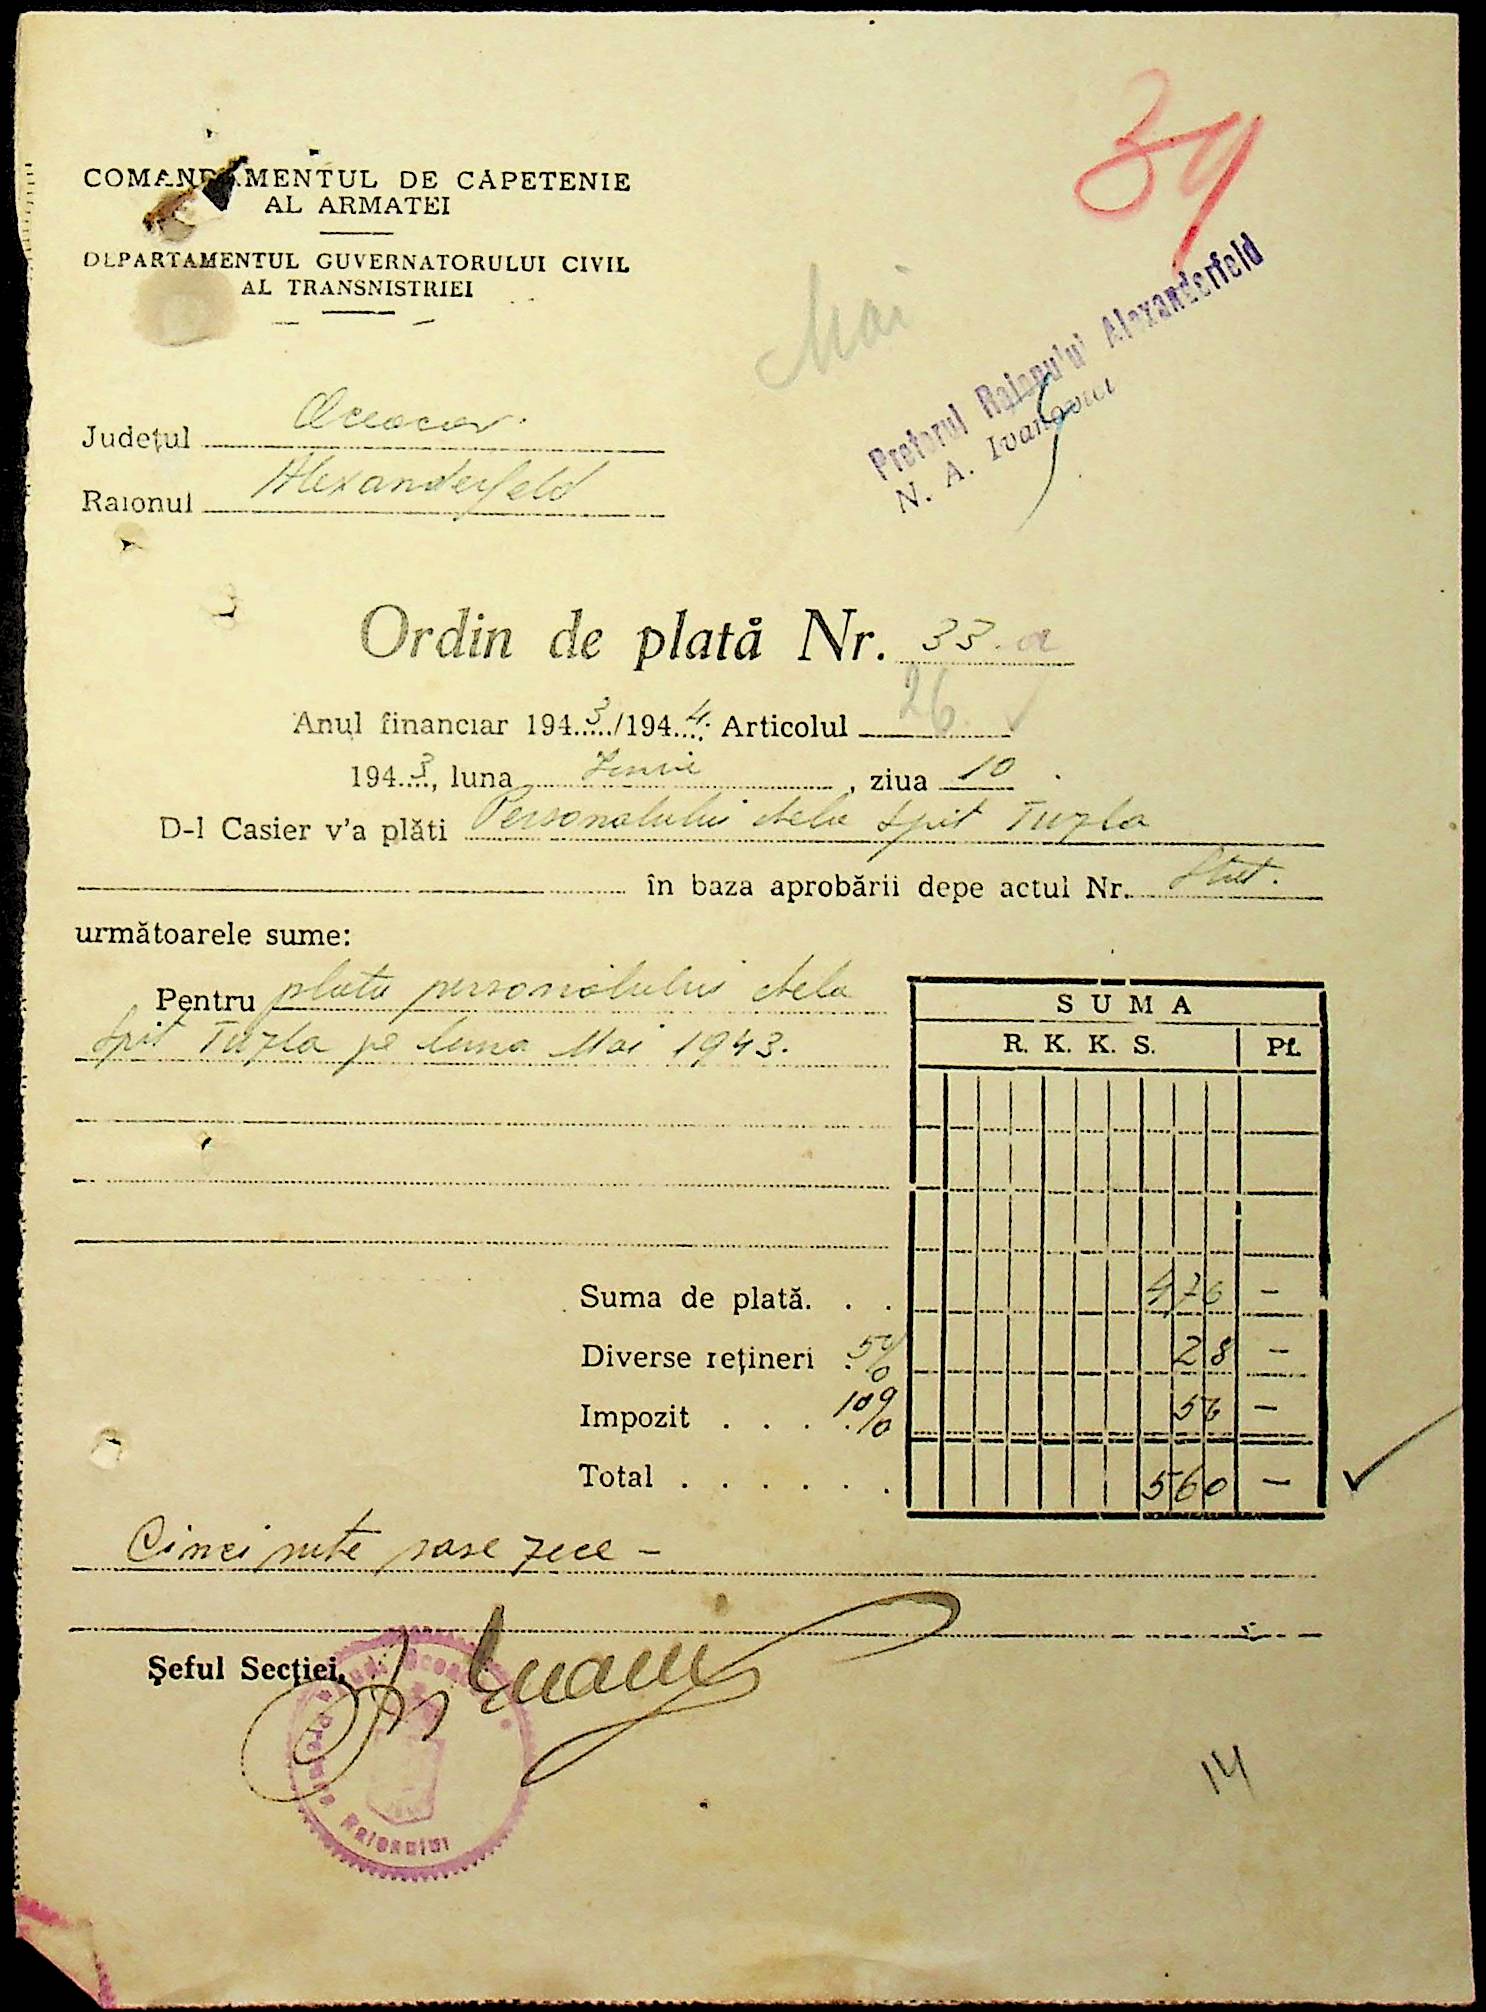 39
COMANDAMENTUL DE CAPETENIE
AL ARMATEI
DEPARTAMENTUL GUVERNATORULUI CIVIL
AL TRANSNISTRIEI
Mai
Pretorul Raionului Alexanderfeld
N. A. Ivanovici
Județul Oceacov
Raionul Alexanderfeld
Ordin de plată Nr. 33.a
Anul financiar 1943/1944. Articolul 26.
1943, luna Iunie, ziua 10
D-l Casier v'a plăti Personalului dela Spit Tuzla
în baza aprobării depe actul Nr. Stat.
următoarele sume:
Pentru plata personalului dela
Spit Tuzla pe luna Mai 1943.
SUMA
R. K. K. S. Pf.
Suma de plată. . . 476 –
Diverse rețineri 5% 28 –
Impozit . . . 10% 56 –
Total . . . . . . 560 –
Cinci sute șase zece –
Șeful Secției,
Jud. Oceacov
Pretura Raionului
14